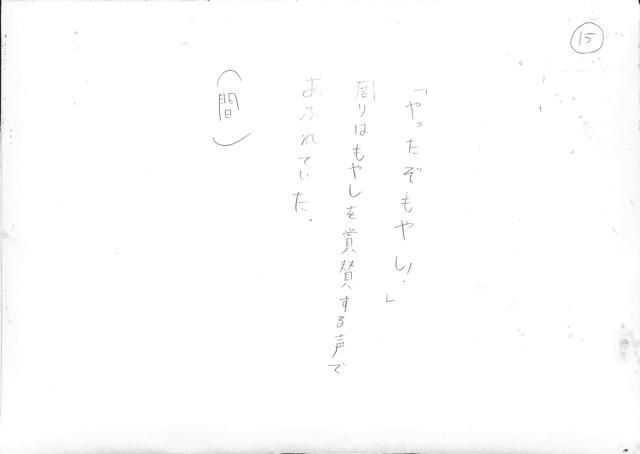 ⑮
「やったぞもやし!」
周りはもやしを賞賛する声で
あふれていた.
(間)